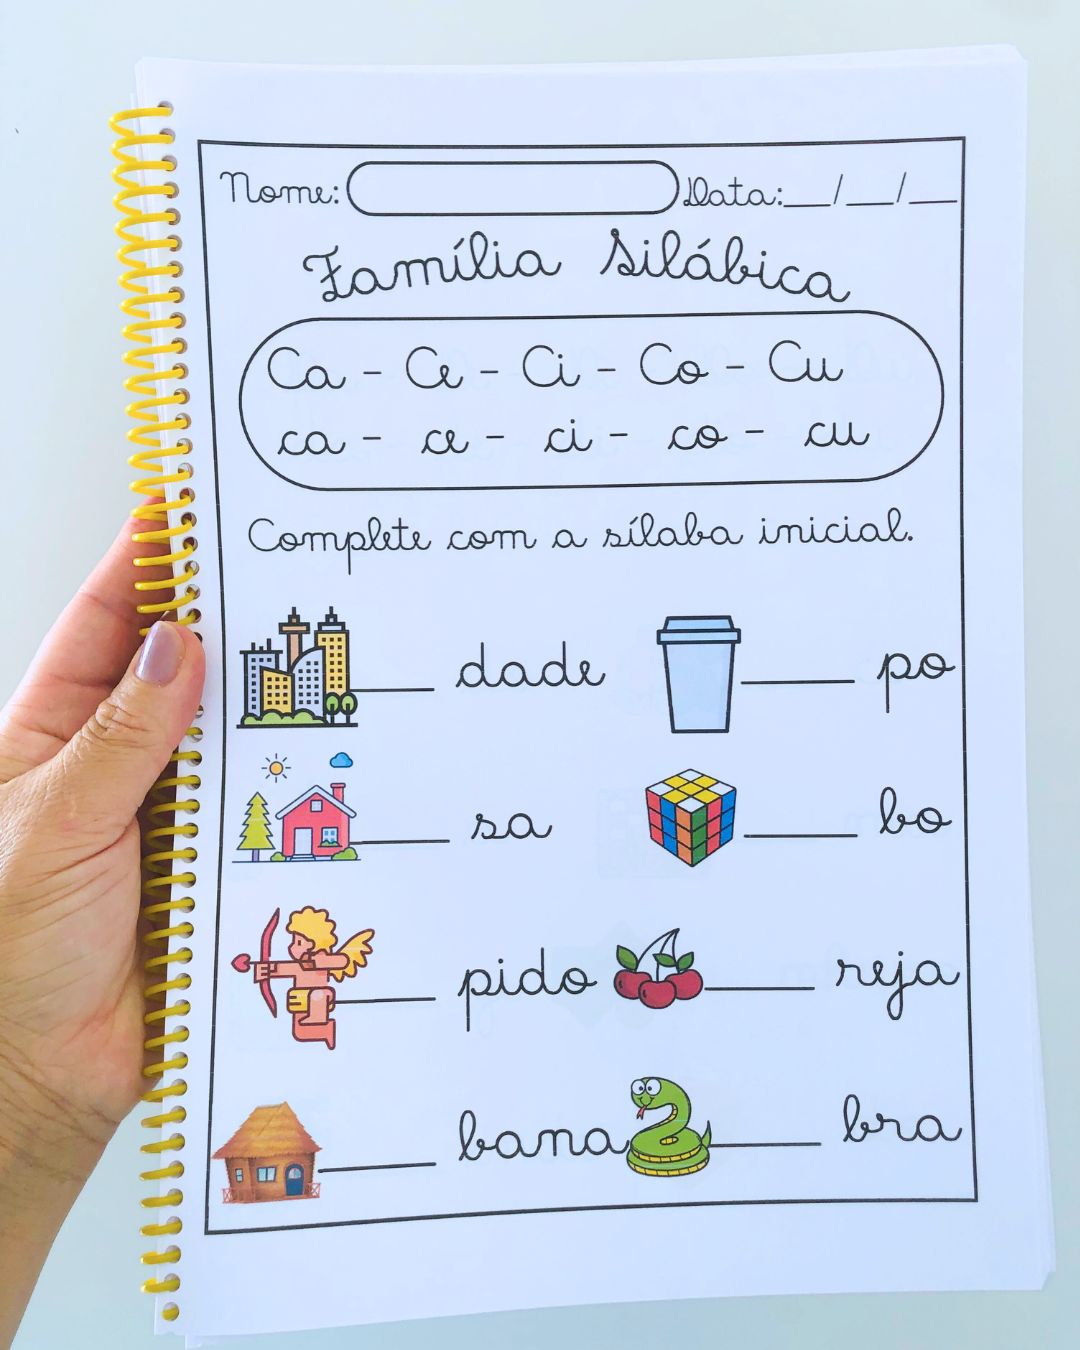 Nome: Data:__/__/__
Família Silábica
Ca - Ce - Ci - Co - Cu
ca - ce - ci - co - cu
Complete com a sílaba inicial.
____ dade ____ po
____ sa ____ bo
____ pido ____ reja
____ bana ____ bra